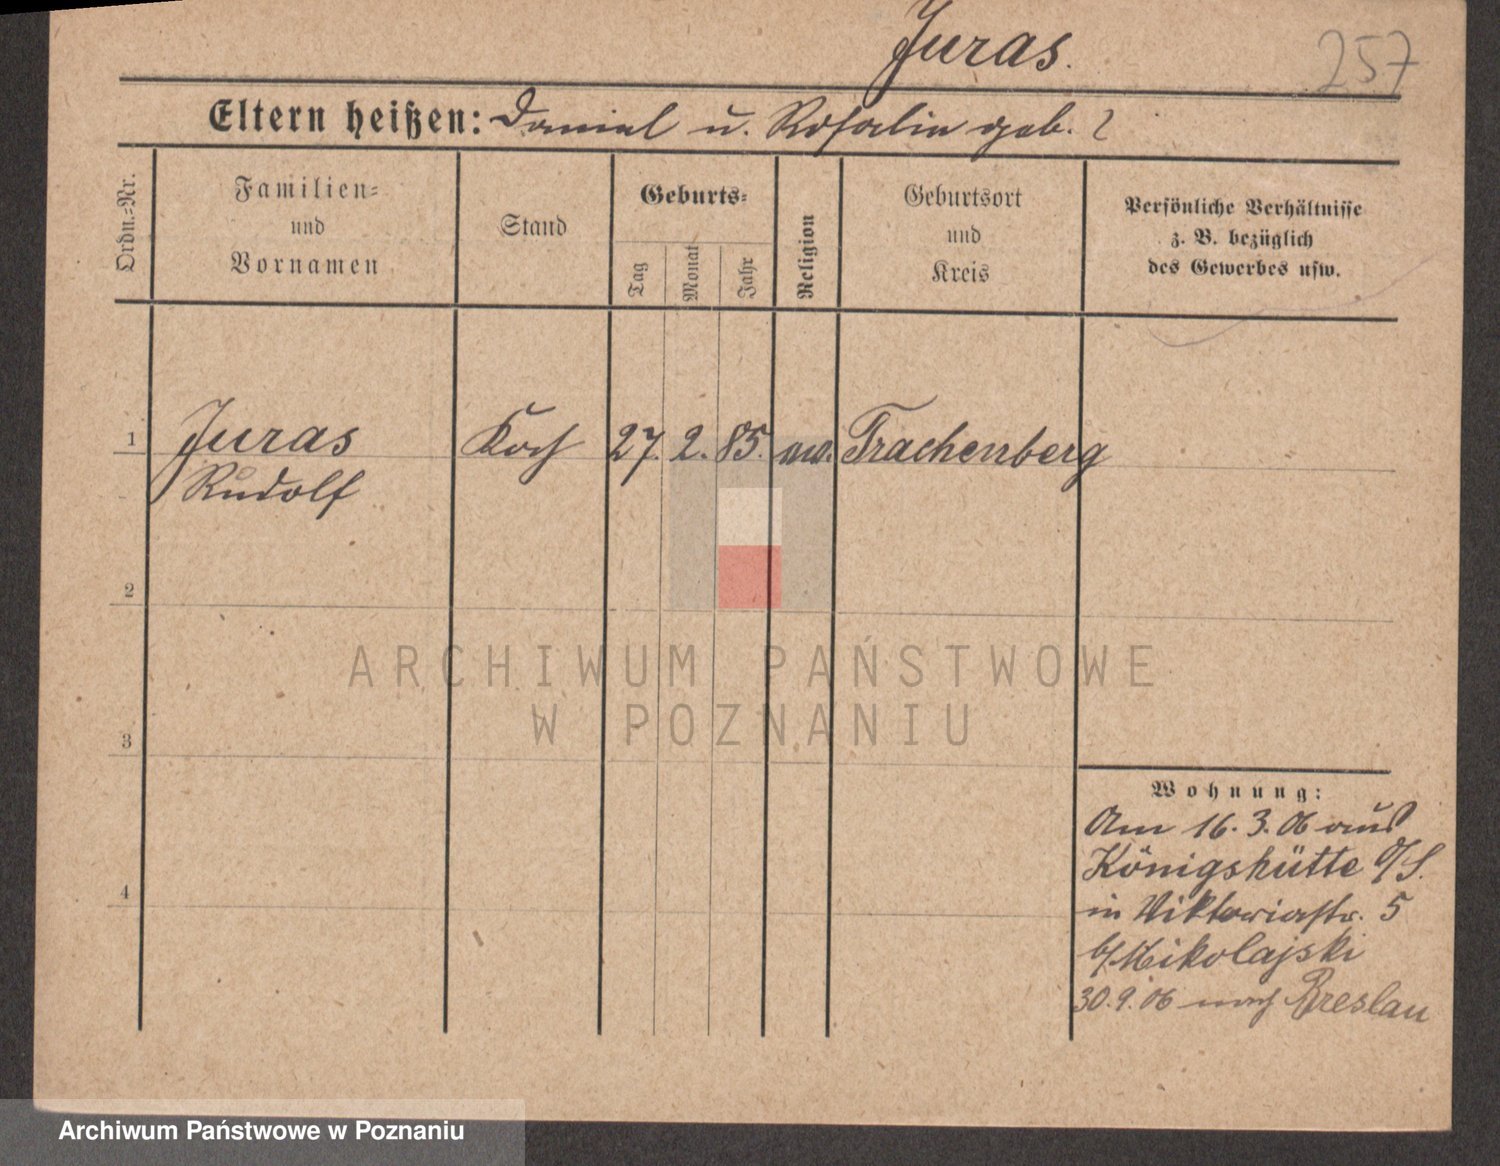 Juras.
257
Eltern heißen: Daniel u. Rosalie geb. ?
Ordn.=Nr.
Familien=
und
Vornamen
Stand
Geburts=
Tag
Monat
Jahr
Religion
Geburtsort
und
Kreis
Persönliche Verhältnisse
z. B. bezüglich
des Gewerbes usw.
1 Juras Koch 27. 2. 85. ew. Trachenberg
Rudolf
2
3
4
Wohnung:
Am 16. 3. 06 aus
Königshütte O/S.
in Viktoriastr. 5
b/Mikolajski
30.9.06 nach Breslau
ARCHIWUM PAŃSTWOWE
W POZNANIU
Archiwum Państwowe w Poznaniu